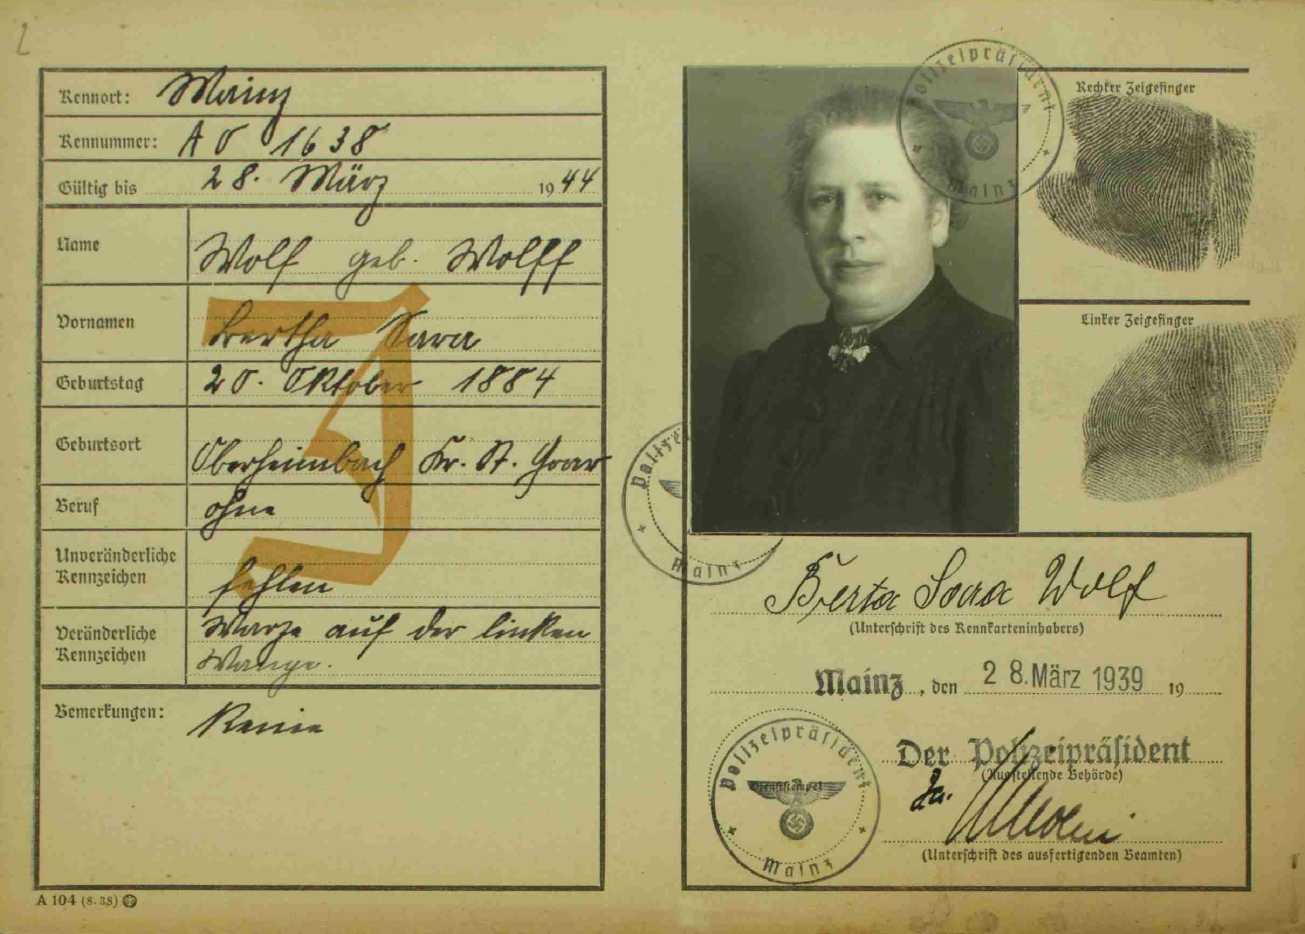 2
Kennort: Mainz
Kennummer: A 0 1638
Gültig bis 28. März 1944
Name Wolf geb. Wolff
Vornamen Bertha Sara
J
Geburtstag 20. Oktober 1884
Geburtsort Oberheimbach Kr. St. Goar
Beruf ohne
Unveränderliche Kennzeichen fehlen
Veränderliche Kennzeichen Warze auf der linken
Wange.
Bemerkungen: Keine
A 104 (8. 38)
Polizeipräsident
Mainz
Rechter Zeigefinger
Linker Zeigefinger
Polizei
Mainz
Berta Sara Wolf
(Unterschrift des Kennkarteninhabers)
Mainz, den 28. März 1939 19
Polizeipräsident
Dienststempel
Mainz
Der Polizeipräsident
(Ausstellende Behörde)
(Unterschrift des ausfertigenden Beamten)